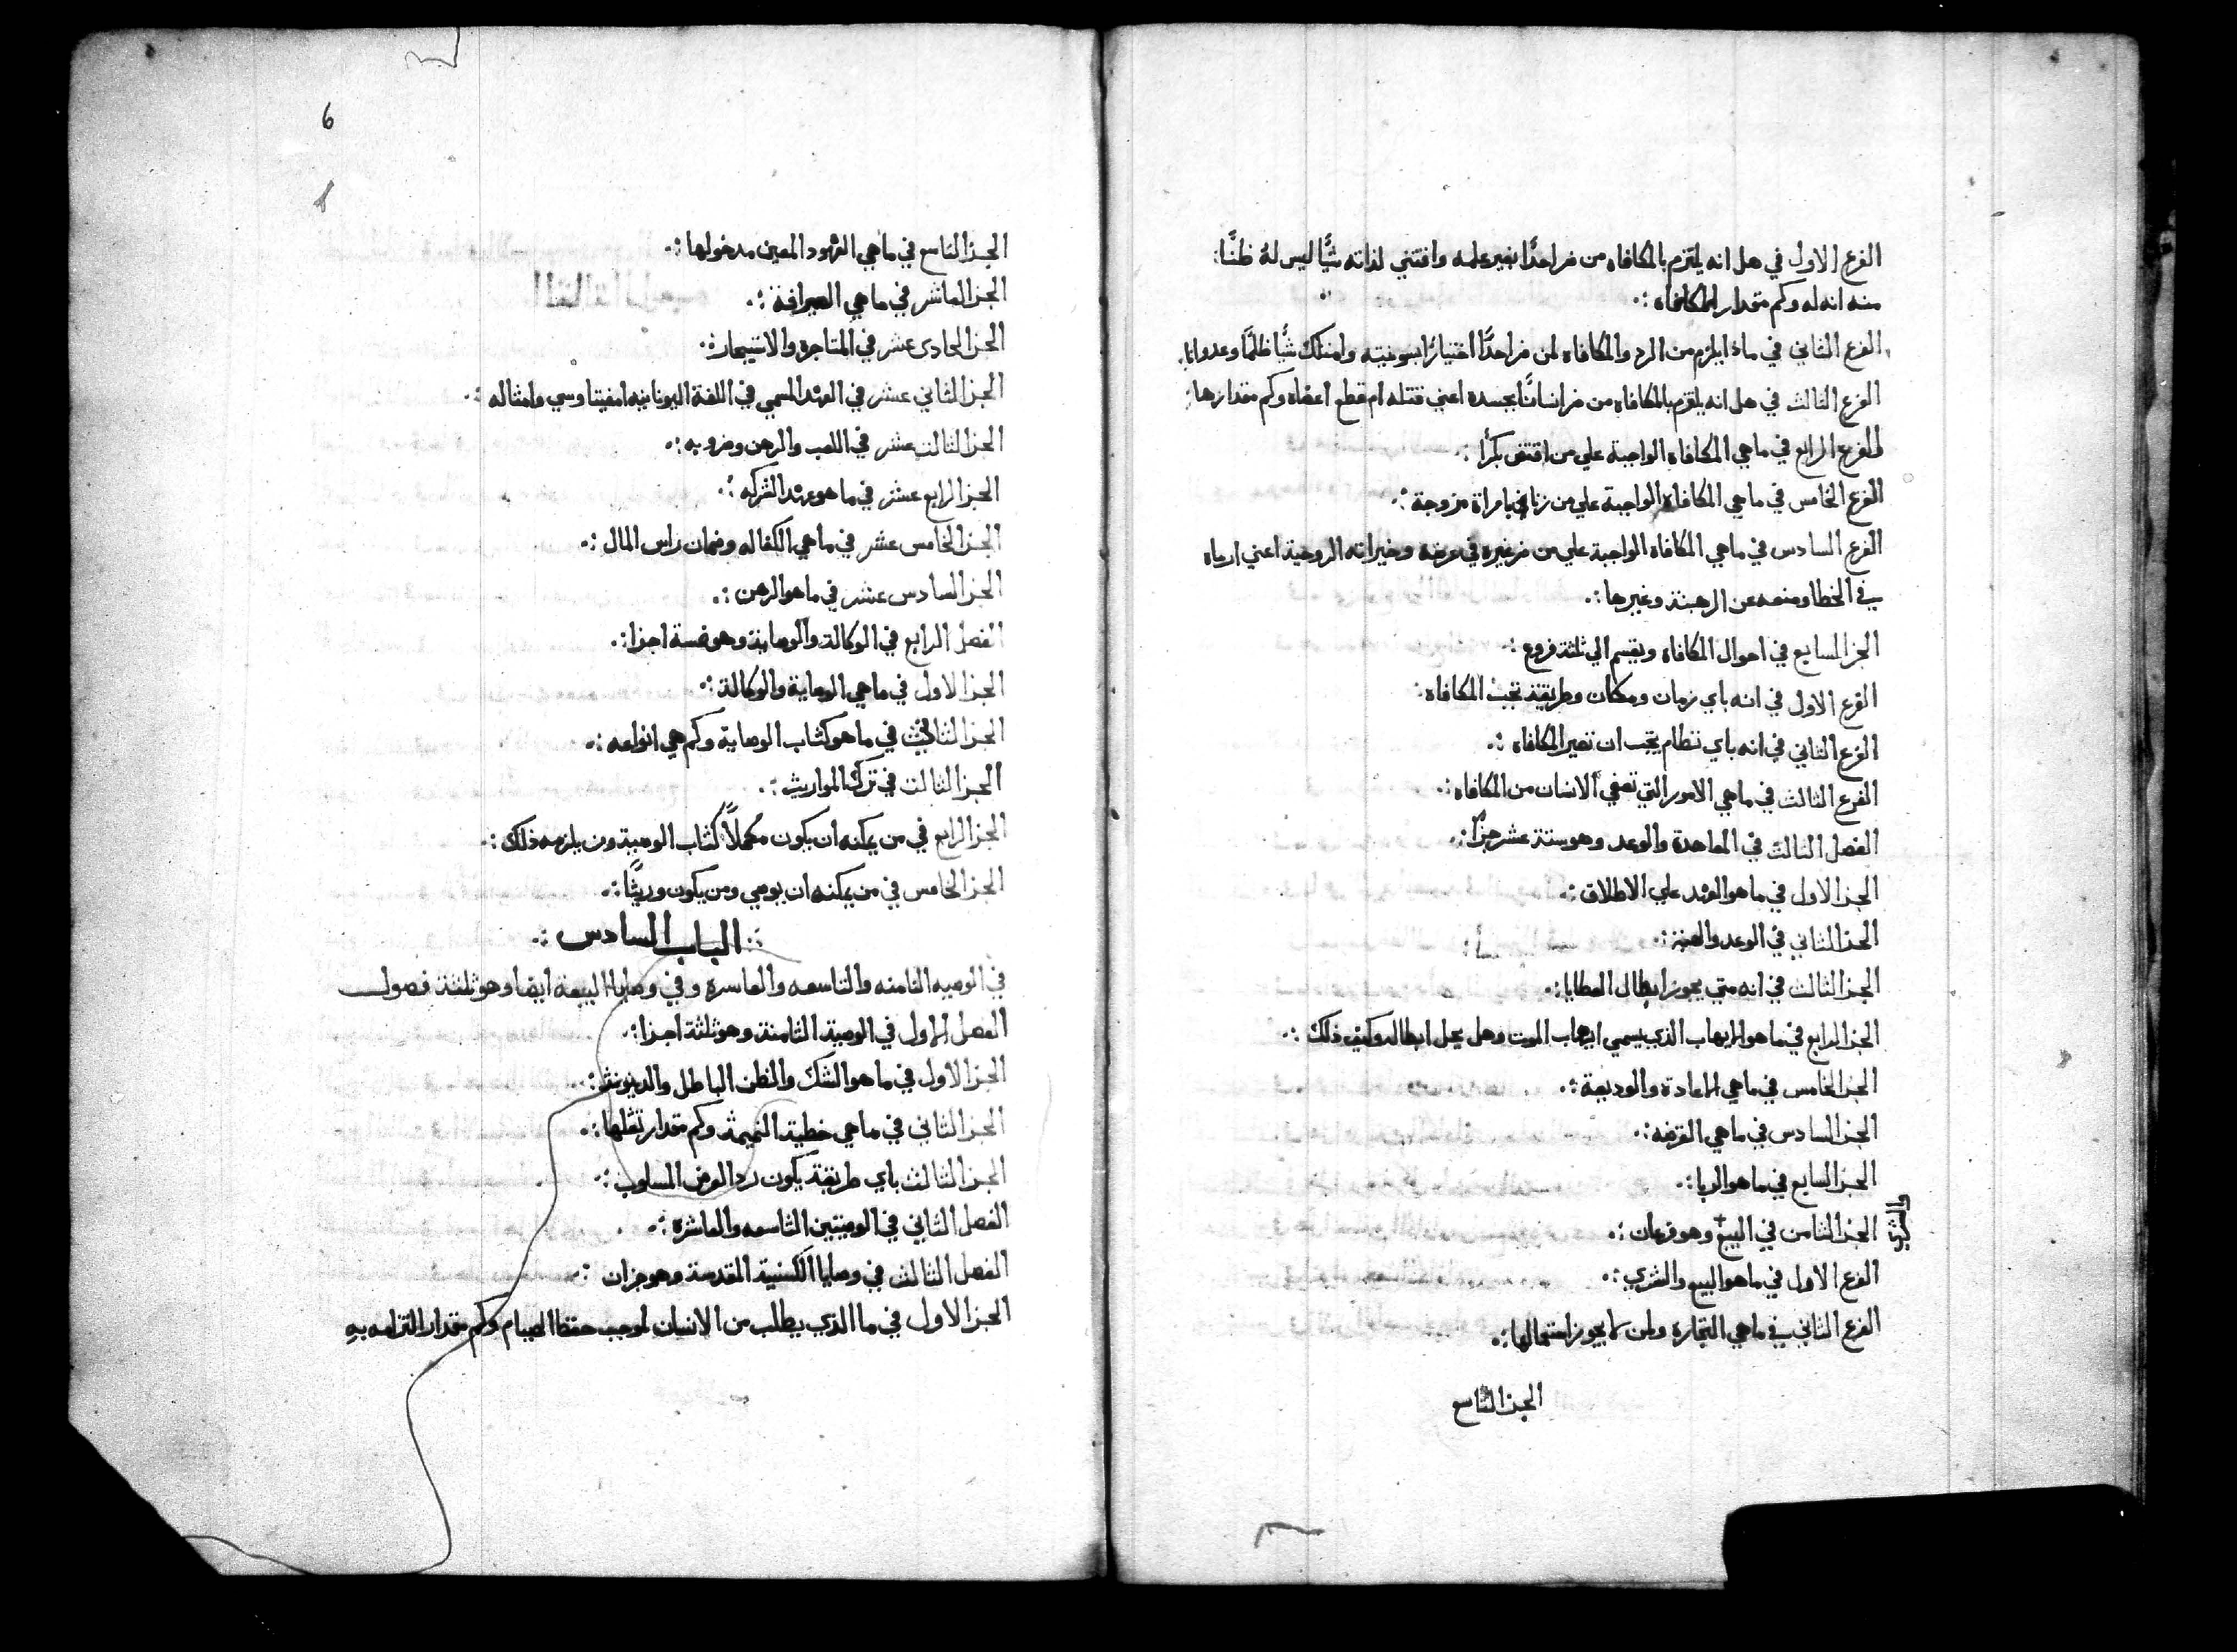 الفرع الاول في هل انه يلتزم بالمكافاه من ضر احدًا بغير علمه واقتني لذاته شيًّا ليس لهُ ظنًّا
منه انه له وكم مقدار المكافاه :·
الفرع الثاني في ماذا يلزم من الرد والمكافاه لمن ضر احدًا اختيارًا وامتلك شيًّا ظلمًا وعدوانا
الفرع الثالث في هل انه يلتزم بالمكافاه من ضر انسانًا بجسده اعني قتله ام قطع اعضاه وكم مقدارها
الفرع الرابع في ماهي المكافاه الواجبة علي من افتض بكرًا :·
الفرع الخامس في ماهي المكافاه الواجبة علي من زنا بامراة مزوجة :·
الفرع السادس في ماهي المكافاه الواجبة علي من ضر غيره في عرضه وخيراته الروحية اعني ارماه
في الخطا ومنعه عن الرهبنة وغيرها :·
الجز السابع في احوال المكافاه ويقسم الي ثلثة فروع :·
الفرع الاول في انه باي زمان ومكان وطريقة تجب المكافاه
الفرع الثاني في انه باي نظام يجب ان تصير المكافاه :·
الفرع الثالث في ماهي الامور التي تعفي الانسان من المكافاه :·
الفصل الثالث في المعاهدة والوعد وهو ستة عشر جزًا :·
الجز الاول في ماهو العهد علي الاطلاق :·
الجز الثاني في الوعد والهبة :·
الجز الثالث في انه متي يجوز ابطال العطايا :·
الجز الرابع في ماهو الايهاب الذي يسمي ايهاب الموت وهل يحل ابطاله وكيف ذلك :·
الجز الخامس في ماهي الاعارة والوديعة :·
الجز السادس في ماهي القرضه :·
الجز السابع في ماهو الربا :·
الجز الثامن في البيع + وهو فرعان :·
والشري
الفرع الاول في ماهو البيع والشري :·
الفرع الثاني في ماهي التجارة ولمن لا يجوز استعمالها :·
الجز التاسع
6
الجز التاسع في ماهي العهود المعين مدخولها :·
الجز العاشر في ماهي الصرافة :·
الجز الحادى عشر في المتاجرة والاستيجار :·
الجز الثاني عشر في العهد المسمي في اللغة اليونانيه امفيتاوسي وامثاله :·
الجز الثالث عشر في اللعب والرهن وضروبه :·
الجز الرابع عشر في ماهو عهد الشركه :·
الجز الخامس عشر في ماهي الكفاله وضمان راس المال :·
الجز السادس عشر في ماهو الرهن :·
الفصل الرابع في الوكالة والوصاية وهو خمسة اجزا :·
الجز الاول في ماهي الوصاية والوكالة :·
الجز الثاني في ماهو كتاب الوصاية وكم هي انواعه :·
الجز الثالث في ترك المواريث :·
الجز الرابع في من يمكنه ان يكون مكملًا كتاب الوصية ومن يلزمه ذلك :·
الجز الخامس في من يمكنه ان يوصي ومن يكون وريثًا :·
:· الباب السادس :·
في الوصيه الثامنه والتاسعه والعاسرة وفي وصايا البيعة ايضا وهو ثلثة فصول
الفصل الاول في الوصية الثامنة وهو ثلثة اجزا :·
الجز الاول في ماهو الشك والظن الباطل والدينونة :·
الجز الثاني في ماهي خطية النميمة وكم مقدار ثقلها :·
الجز الثالث باي طريقة يكون رد العرض المسلوب :·
الفصل الثاني في الوصيتين التاسعه والعاشرة :·
الفصل الثالث في وصايا الكنيسة المقدسة وهو جزان :·
الجز الاول في ما الذي يطلب من الانسان لوجب حفظ الصيام وكم مقدار التزامه به